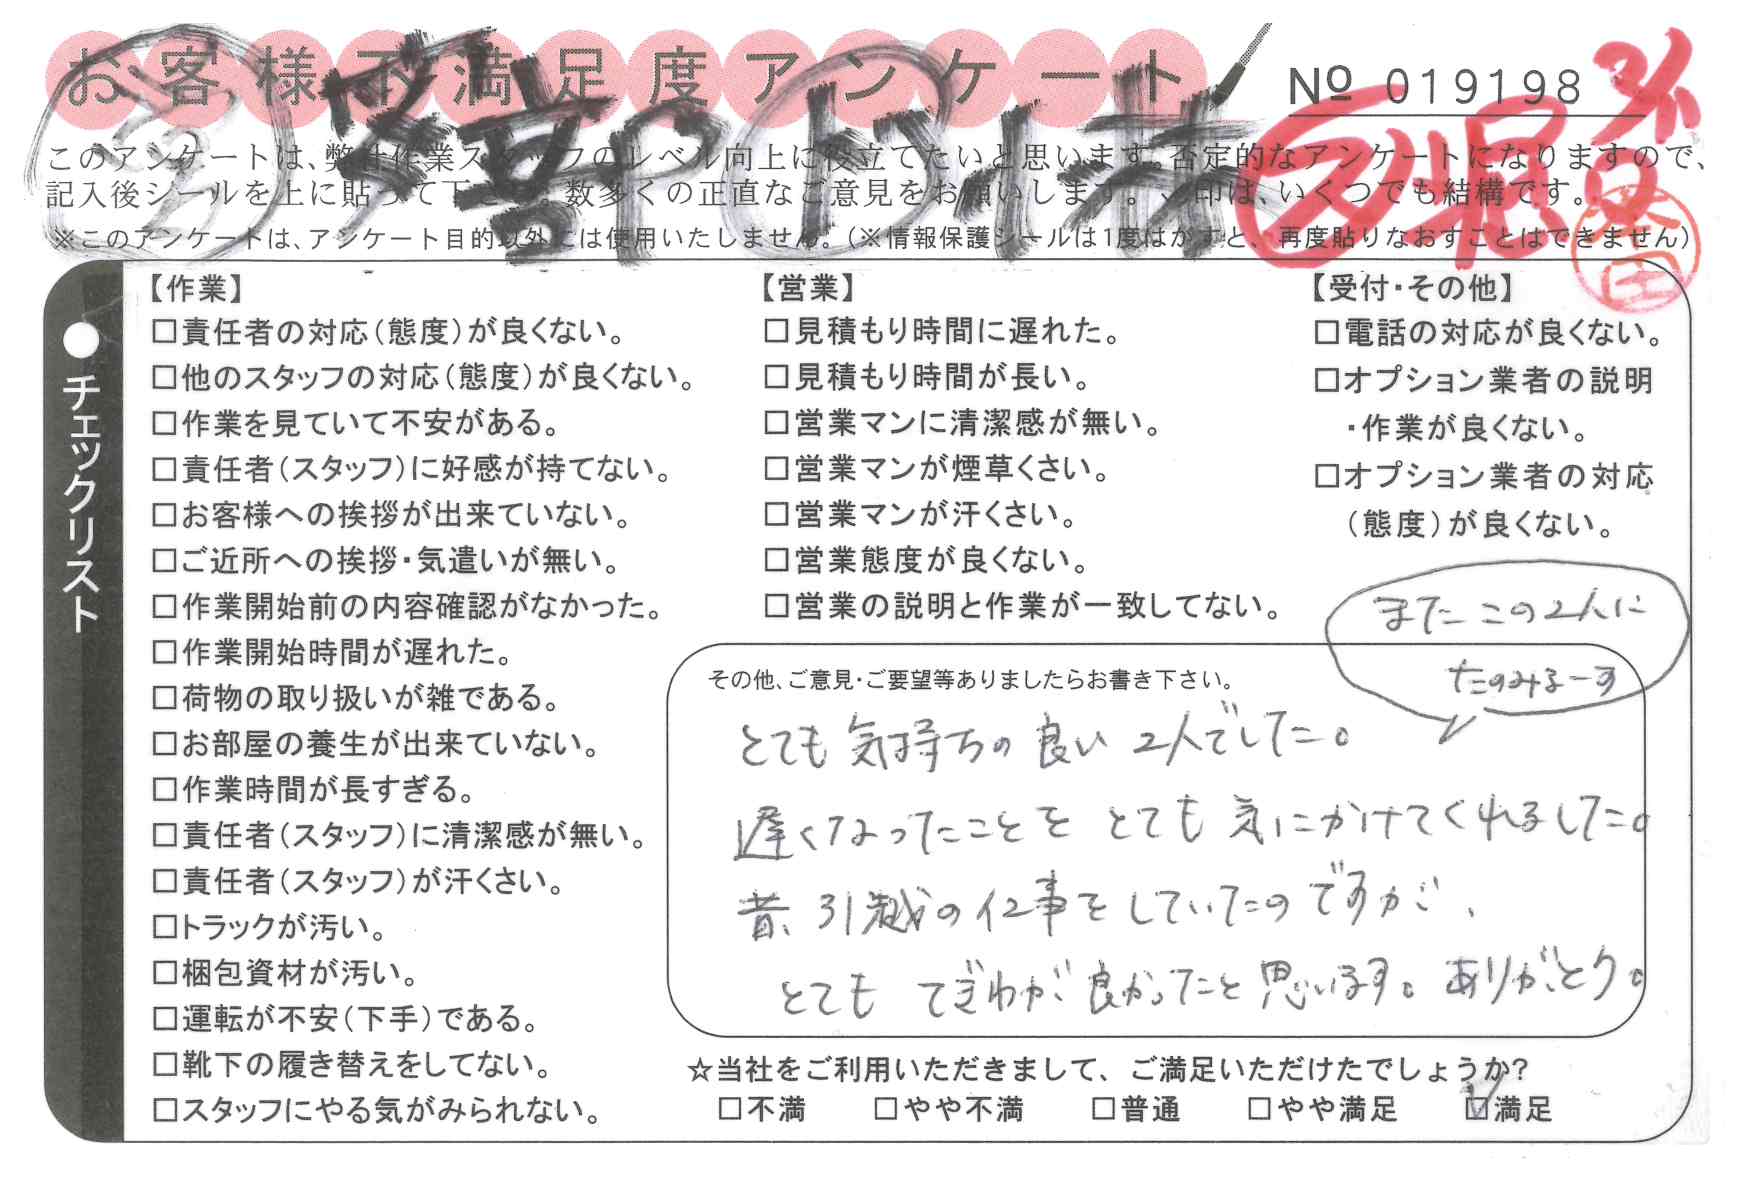 お客様不満足度アンケート
№ 019198
このアンケートは、弊社作業スタッフのレベル向上に役立てたいと思います。否定的なアンケートになりますので、
記入後シールを上に貼って下さい。数多くの正直なご意見をお願いします。✓印は、いくつでも結構です。
※このアンケートは、アンケート目的以外には使用いたしません。(※情報保護シールは1度はがすと、再度貼りなおすことはできません)
チェックリスト
【作業】
□責任者の対応(態度)が良くない。
□他のスタッフの対応(態度)が良くない。
□作業を見ていて不安がある。
□責任者(スタッフ)に好感が持てない。
□お客様への挨拶が出来ていない。
□ご近所への挨拶・気遣いが無い。
□作業開始前の内容確認がなかった。
□作業開始時間が遅れた。
□荷物の取り扱いが雑である。
□お部屋の養生が出来ていない。
□作業時間が長すぎる。
□責任者(スタッフ)に清潔感が無い。
□責任者(スタッフ)が汗くさい。
□トラックが汚い。
□梱包資材が汚い。
□運転が不安(下手)である。
□靴下の履き替えをしてない。
□スタッフにやる気がみられない。
【営業】
□見積もり時間に遅れた。
□見積もり時間が長い。
□営業マンに清潔感が無い。
□営業マンが煙草くさい。
□営業マンが汗くさい。
□営業態度が良くない。
□営業の説明と作業が一致してない。
【受付・その他】
□電話の対応が良くない。
□オプション業者の説明
・作業が良くない。
□オプション業者の対応
(態度)が良くない。
またこの2人に
たのみまーす
その他、ご意見・ご要望等ありましたらお書き下さい。
とても気持ちの良い2人でした。
遅くなったことをとても気にかけてくれました。
昔、引越の仕事をしていたのですが、
とても てぎわが良かったと思います。ありがとう。
☆当社をご利用いただきまして、ご満足いただけたでしょうか?
□不満 □やや不満 □普通 □やや満足 ☑満足